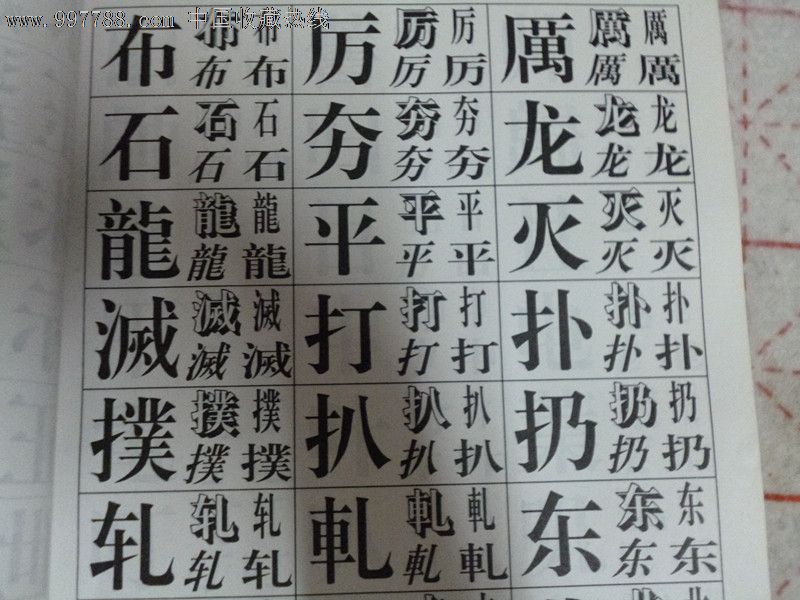 www.997788.com 中国收藏热线
布 布 布 布 布 厉 厉 厉 厉 厉 厲 厲 厲 厲 厲
石 石 石 石 石 夯 夯 夯 夯 夯 龙 龙 龙 龙 龙
龍 龍 龍 龍 龍 平 平 平 平 平 灭 灭 灭 灭 灭
滅 滅 滅 滅 滅 打 打 打 打 打 扑 扑 扑 扑 扑
撲 撲 撲 撲 撲 扒 扒 扒 扒 扒 扔 扔 扔 扔 扔
轧 轧 轧 轧 轧 軋 軋 軋 軋 軋 东 东 东 东 东